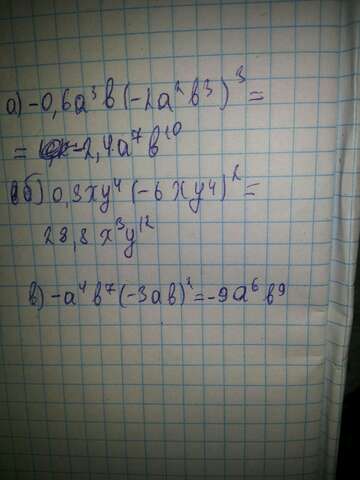 а) -0,6a³b(-2a²b³)³=
= -2,4a⁷b¹⁰
б) 0,8xy⁴(-6xy⁴)²=
28,8x³y¹²
в) -a⁴b⁷(-3ab)²=-9a⁶b⁹